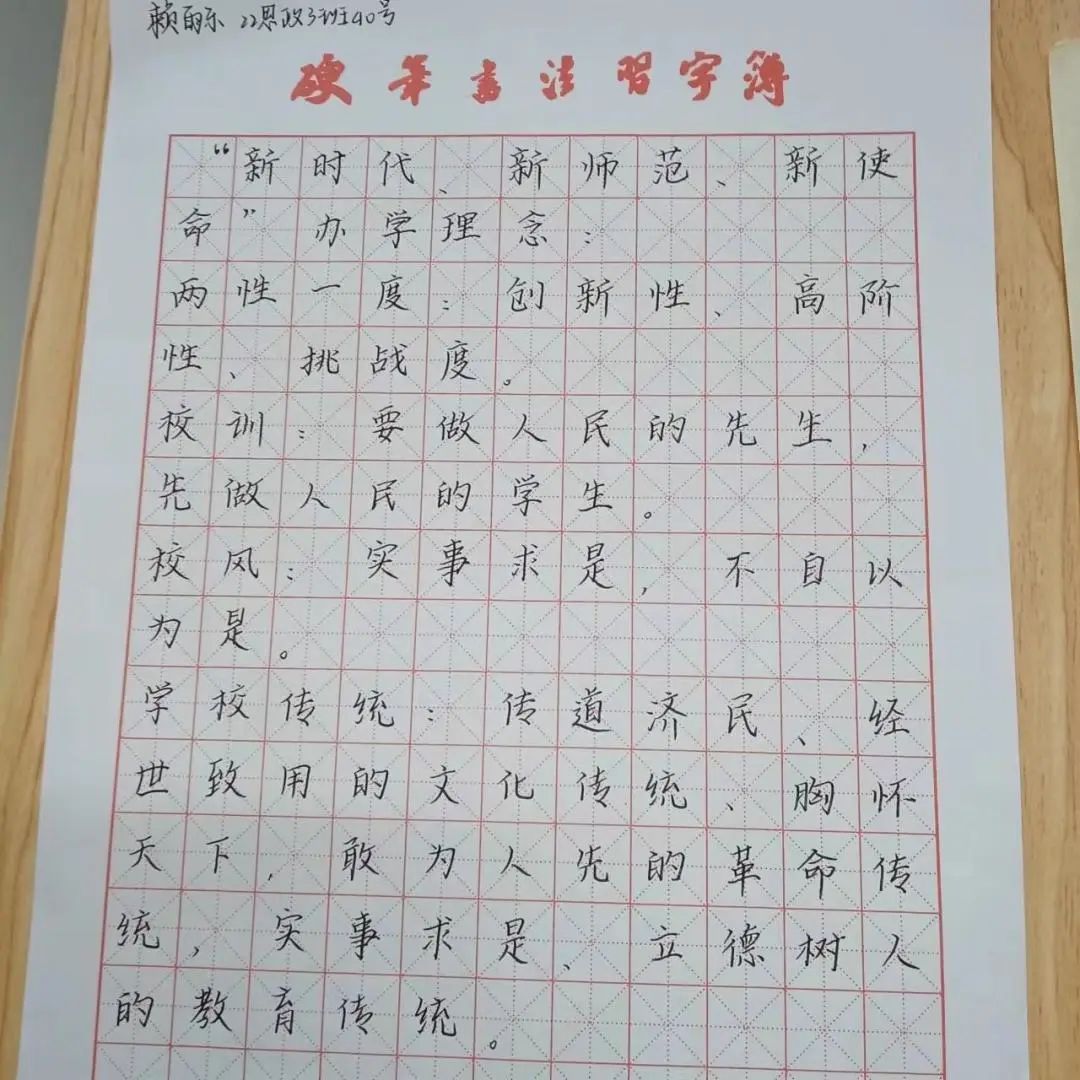 赖丽乐 22思政3班40号
硬笔书法习字簿
“新时代、新师范、新使
命”办学理念：
两性一度：创新性、高阶
性、挑战度。
校训：要做人民的先生，
先做人民的学生。
校风：实事求是，不自以
为是。
学校传统：传道济民、经
世致用的文化传统、胸怀
天下，敢为人先的革命传
统，实事求是、立德树人
的教育传统。